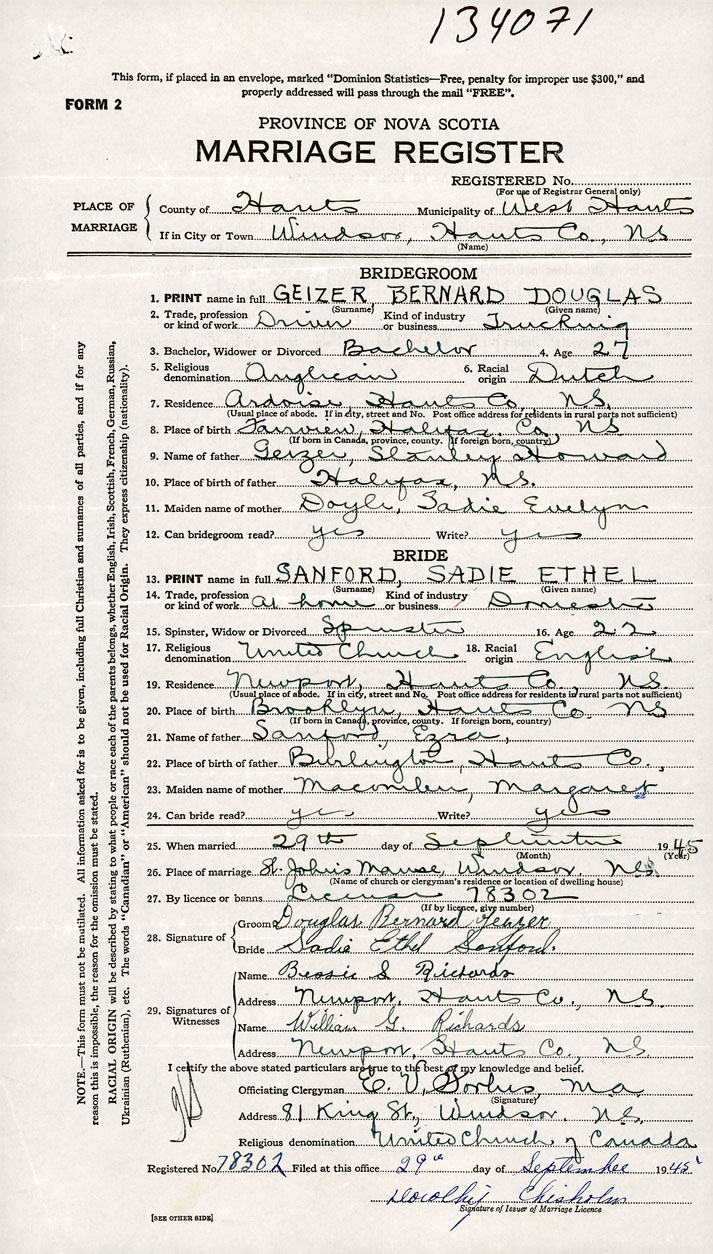 134071
This form, if placed in an envelope, marked "Dominion Statistics—Free, penalty for improper use $300," and
properly addressed will pass through the mail "FREE".
FORM 2
PROVINCE OF NOVA SCOTIA
MARRIAGE REGISTER
REGISTERED No.
(For use of Registrar General only)
PLACE OF MARRIAGE
County of Hants Municipality of West Hants
If in City or Town Windsor, Hants Co., NS
(Name)
BRIDEGROOM
1. PRINT name in full GEIZER, BERNARD DOUGLAS
(Surname) (Given name)
2. Trade, profession or kind of work Driver Kind of industry or business Trucking
3. Bachelor, Widower or Divorced Bachelor 4. Age 27
5. Religious denomination Anglican 6. Racial origin Dutch
7. Residence Ardoise, Hants Co., NS.
(Usual place of abode. If in city, street and No. Post office address for residents in rural parts not sufficient)
8. Place of birth Fairview, Halifax, Co., NS
(If born in Canada, province, county. If foreign born, country)
9. Name of father Geizer, Stanley Howard
10. Place of birth of father Halifax, N.S.
11. Maiden name of mother Doyle, Sadie Evelyn
12. Can bridegroom read? yes Write? yes
BRIDE
13. PRINT name in full SANFORD, SADIE ETHEL
(Surname) (Given name)
14. Trade, profession or kind of work at home Kind of industry or business Domestic
15. Spinster, Widow or Divorced Spinster 16. Age 22
17. Religious denomination United Church 18. Racial origin English
19. Residence Newport, Hants Co., NS.
(Usual place of abode. If in city, street and No. Post office address for residents in rural parts not sufficient)
20. Place of birth Brooklyn, Hants Co. NS
(If born in Canada, province, county. If foreign born, country)
21. Name of father Sanford, Ezra,
22. Place of birth of father Burlington, Hants Co.,
23. Maiden name of mother Macomber, Margaret
24. Can bride read? yes Write? yes
25. When married 29th day of September 1945
(Month) (Year)
26. Place of marriage St. John's Manse, Windsor, NS.
(Name of church or clergyman's residence or location of dwelling house)
27. By licence or banns License 78302
(If by licence, give number)
28. Signature of
Groom Douglas Bernard Geazer
Bride Sadie Ethel Sanford.
29. Signatures of Witnesses
Name Bessie S Richards
Address Newport, Hants Co., NS.
Name William G. Richards
Address Newport, Hants Co., NS.
I certify the above stated particulars are true to the best of my knowledge and belief.
Officiating Clergyman E. V. Forbes M.A.
(Signature)
Address 81 King St., Windsor, NS,
Religious denomination United Church of Canada
Registered No. 78302 Filed at this office 29th day of September 1945
Dorothy Chisholm
Signature of Issuer of Marriage Licence
[SEE OTHER SIDE]
NOTE.—This form must not be mutilated. All information asked for is to be given, including full Christian and surnames of all parties, and if for any
reason this is impossible, the reason for the omission must be stated.
RACIAL ORIGIN will be described by stating to what people or race each of the parents belongs, whether English, Irish, Scottish, French, German, Russian,
Ukrainian (Ruthenian), etc. The words "Canadian" or "American" should not be used for Racial Origin. They express citizenship (nationality).